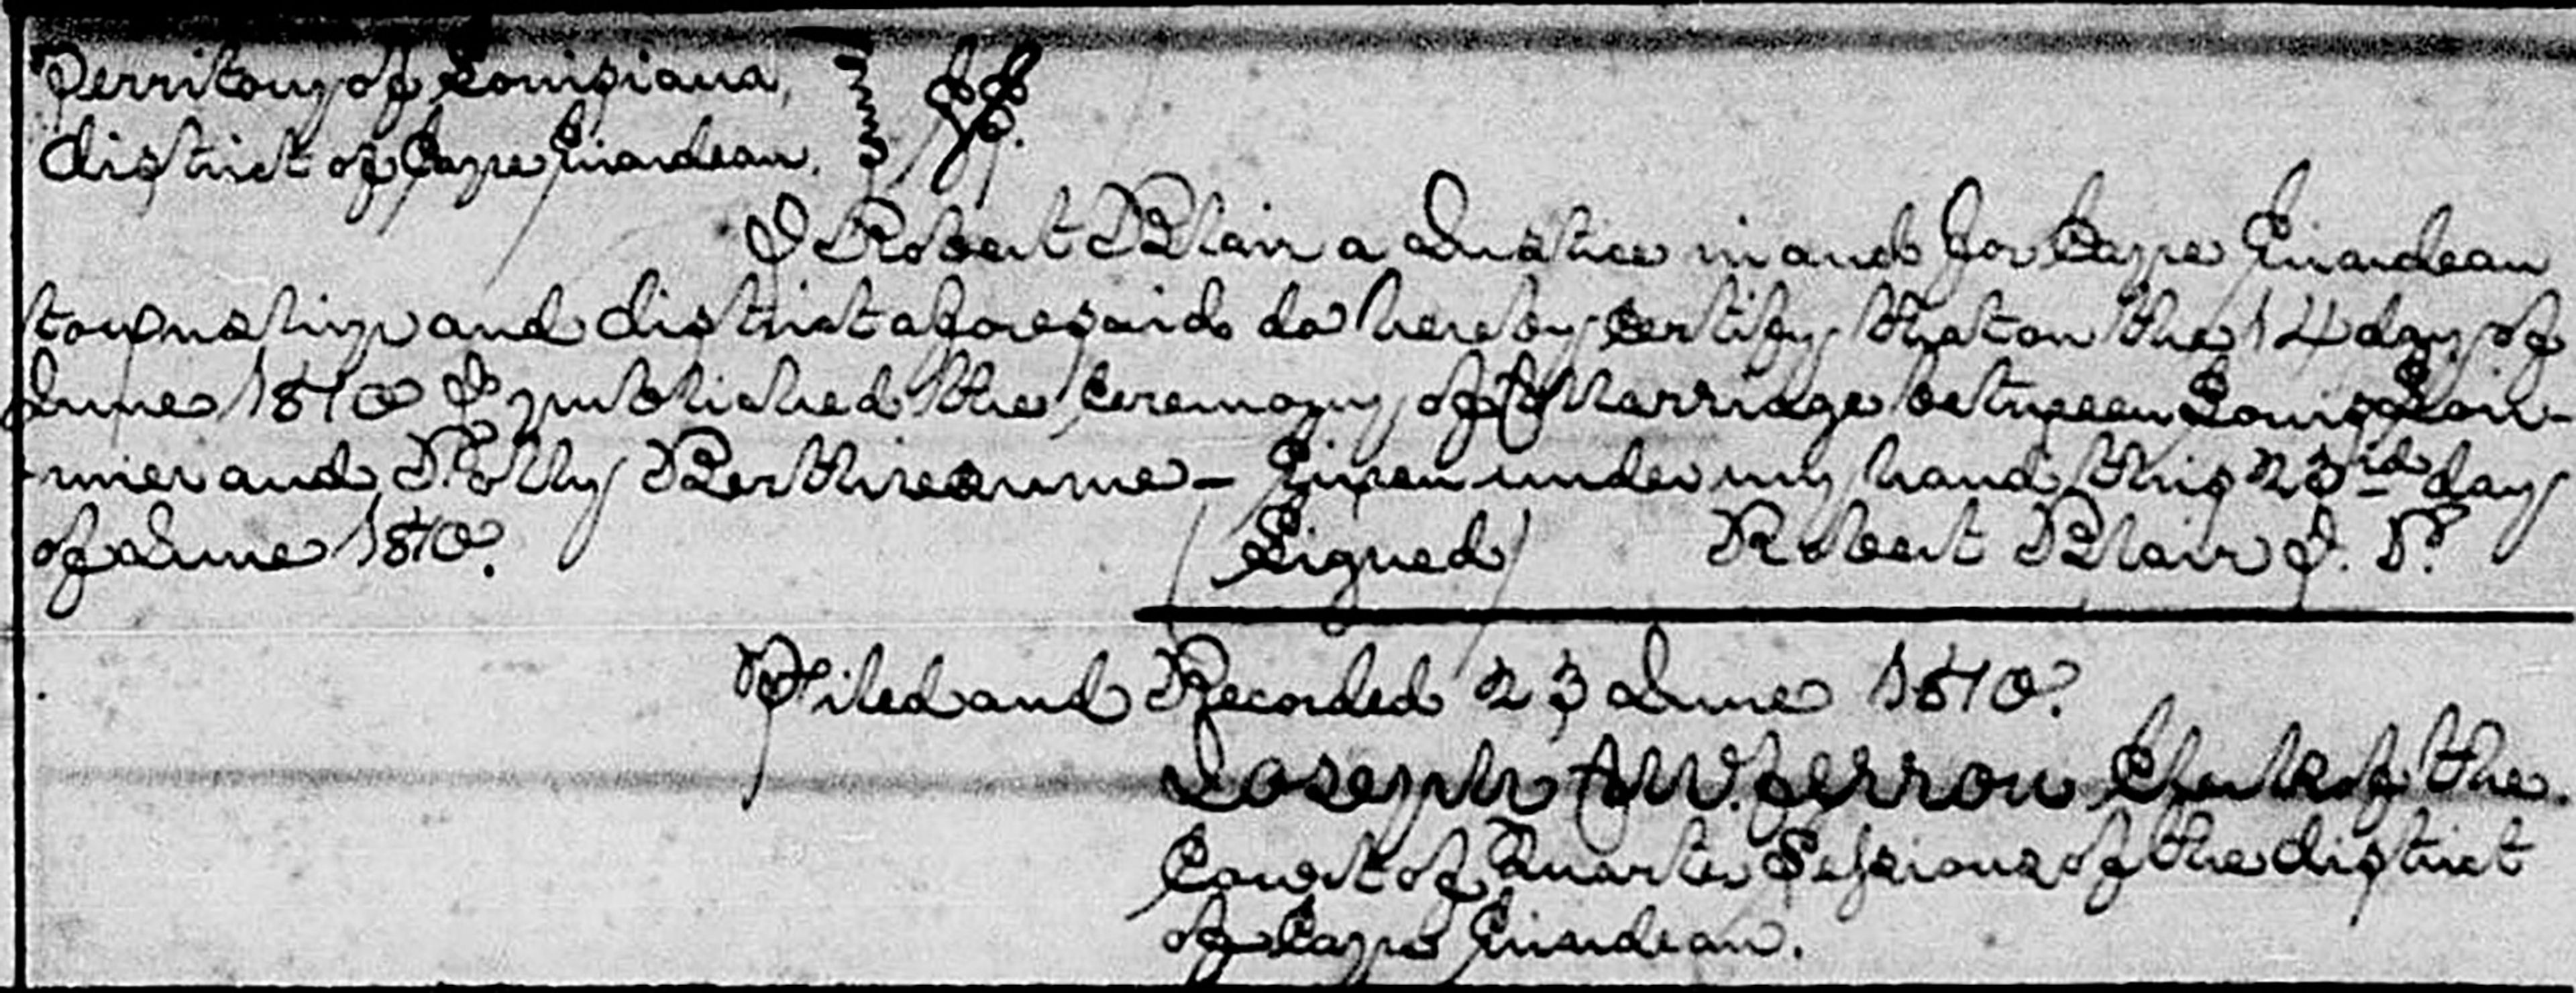 Territory of Louisiana,
district of Cape Girardeau. } ss.
I Robert Blair a Justice in and for Cape Girardeau
township and district aforesaid do hereby Certify that on the 14 day of
June 1810 I published the Ceremony of Marriage between Louis Lori-
-mier and Polly Berthireaume - Given under my hand this 23rd day
of June 1810. (Signed) Robert Blair J. P.
Filed and Recorded 23 June 1810.
Joseph McFerron Clerk of the
Court of Quarter Sessions of the district
of Cape Girardeau.